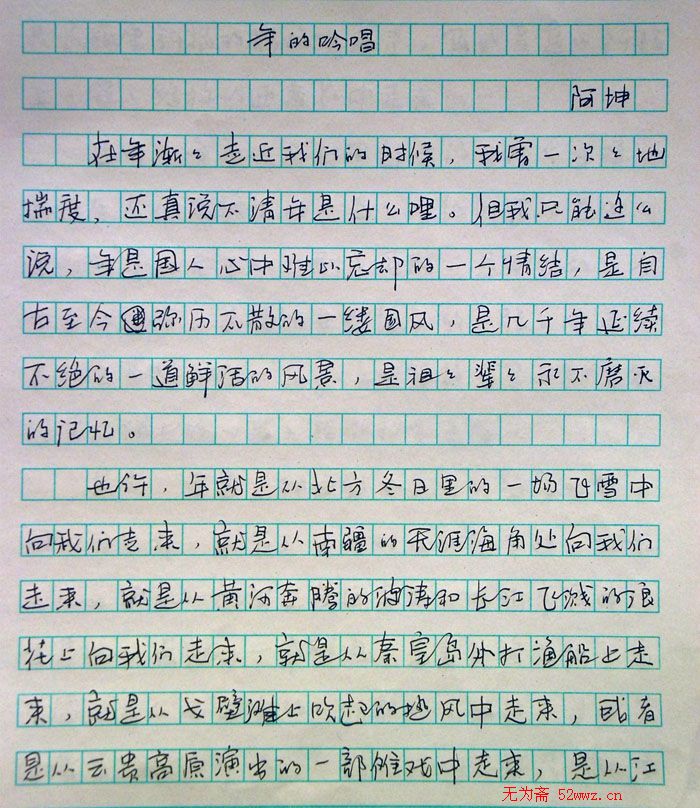 年的吟唱
阿坤
在年渐々走近我们的时候，我曾一次々地
揣度，还真说不清年是什么哩。但我只能这么
说，年是国人心中难以忘却的一个情结，是自
古至今弥历不散的一缕国风，是几千年延续
不绝的一道鲜活的风景，是祖々辈々永不磨灭
的记忆。
也许，年就是从北方冬日里的一场飞雪中
向我们走来，就是从南疆的天涯海角处向我们
走来，就是从黄河奔腾的波涛和长江飞溅的浪
花上向我们走来，就是从秦皇岛外打渔船上走
来，就是从戈壁滩上吹起的风中走来，或者
是从云贵高原演出的一部傩戏中走来，是从江
无为斋 52wwz.cn